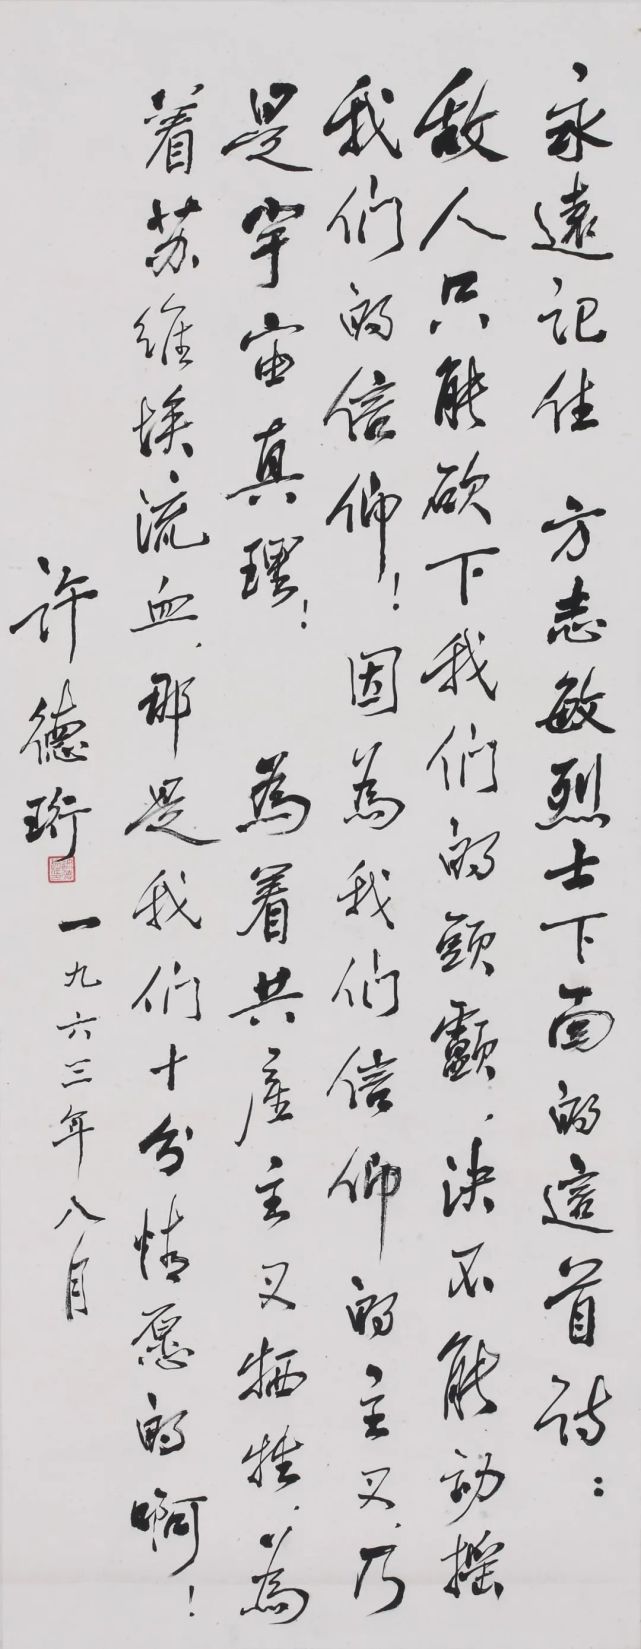 永遠记住 方志敏烈士下面的這首诗：
敌人只能砍下我们的頭顱，决不能动摇
我们的信仰！因為我们信仰的主义，乃
是宇宙真理！ 為着共产主义牺牲，為
着苏维埃流血，那是我们十分情愿的啊！
许德珩
一九六三年八月